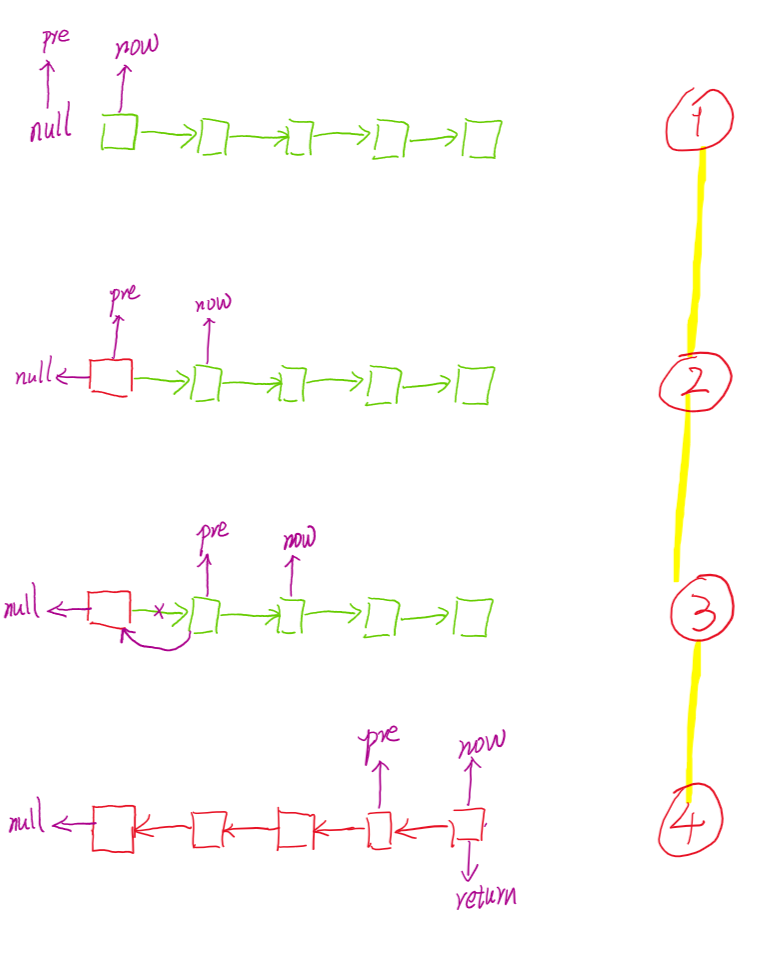 pre
now
null
1
pre
now
null
2
pre
now
null
x
3
pre
now
null
4
return